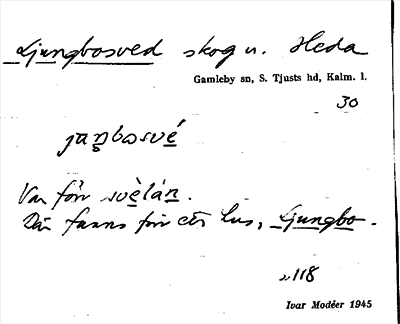 Ljungbosved skog u. Heda
Gamleby sn, S. Tjusts hd, Kalm. l.
30
jaŋbosvé
Var förr svèlán.
Där fanns förr ett hus, Ljungbo.
118
Ivar Modéer 1945